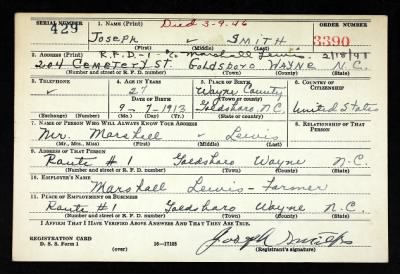 SERIAL NUMBER
429
1. NAME (Print)
Died 3-9-46
ORDER NUMBER
JOSEPH ✓ SMITH
3390
(First) (Middle) (Last)
R.F.D-1-% Marshall Lewis 2/18/41
2. ADDRESS (Print)
204 CEMETERY ST. Goldsboro WAYNE N.C.
(Number and street or R. F. D. number) (Town) (County) (State)
3. TELEPHONE
✓
(Exchange) (Number)
4. AGE IN YEARS
27
DATE OF BIRTH
9-7-1913
(Mo.) (Day) (Yr.)
5. PLACE OF BIRTH
Wayne County
(Town or county)
Goldsboro N.C.
(State or country)
6. COUNTRY OF CITIZENSHIP
United States
7. NAME OF PERSON WHO WILL ALWAYS KNOW YOUR ADDRESS
8. RELATIONSHIP OF THAT PERSON
Mr. Marshall ✓ Lewis
(Mr., Mrs., Miss) (First) (Middle) (Last)
9. ADDRESS OF THAT PERSON
Route #1 Goldsboro Wayne N.C.
(Number and street or R. F. D. number) (Town) (County) (State)
10. EMPLOYER'S NAME
Marshall Lewis-Farmer
11. PLACE OF EMPLOYMENT OR BUSINESS
Route #1 Goldsboro Wayne N.C.
(Number and street or R. F. D. number) (Town) (County) (State)
I AFFIRM THAT I HAVE VERIFIED ABOVE ANSWERS AND THAT THEY ARE TRUE.
REGISTRATION CARD
D. S. S. Form 1
(over)
16-17105
Joseph
(Registrant's signature)